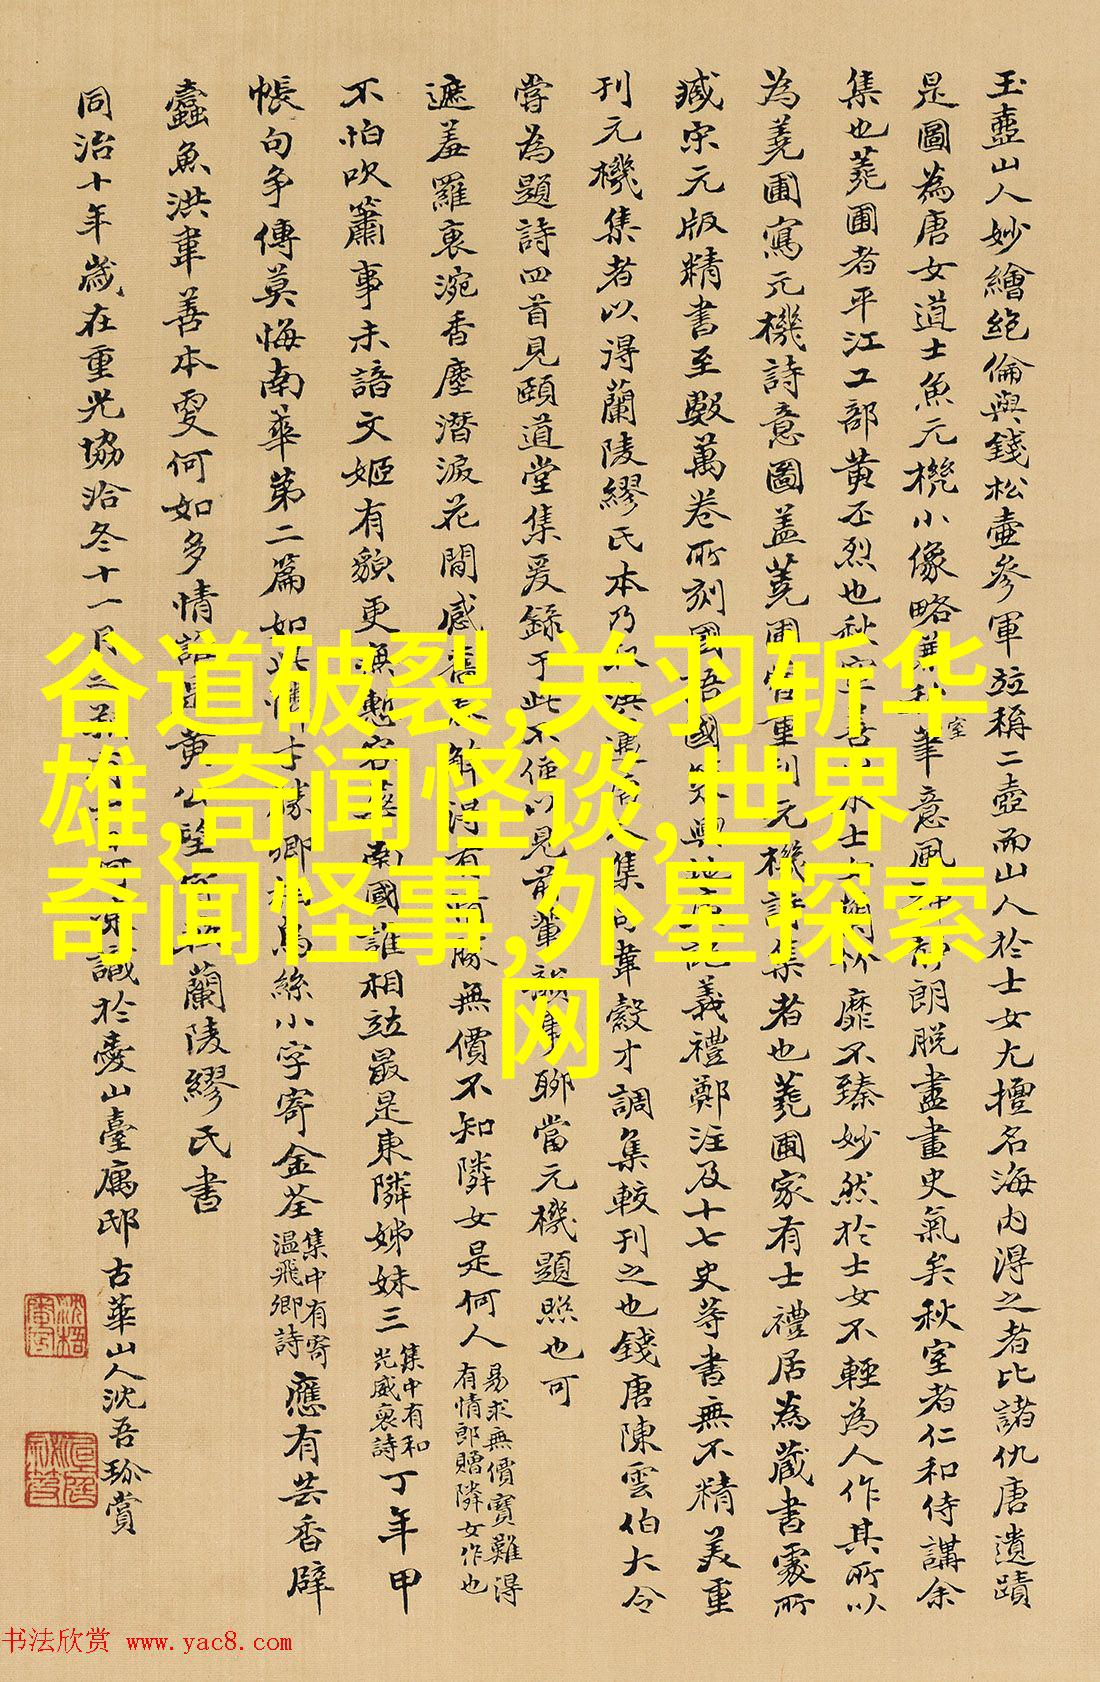 玉壺山人妙繪絕倫與錢松壺參軍並稱二壺而山人於士女尤擅名海內得之者比諸仇唐遺蹟
是圖為唐女道士魚元機小像略兼秋室筆意風神朗脫盡畫史氣矣秋室者仁和侍講余
集也蕘圃者平江工部黃丕烈也秋室善靡不臻妙然於士女不輕為人作其所以
為蕘圃寫元機詩意圖蓋蕘圃曾重刊元機詩集者也蕘圃家有士禮居為藏書處所
臧宋元版精書至數萬卷所刻國語國義禮鄭注及十七史等書無不精美重
刊元機集者以得蘭陵繆氏本乃人集韋縠才調集較刊之也錢唐陳雲伯大令
嘗為題詩四首見頤道堂集爰錄于此不僅以見前輩韻事聊當元機題照也可
遮羞羅裏涴香塵潛淚花間感無價不知隣女是何人易求無價寶難得有情郎贈隣女作也
不怕吹簫事未諳文姬有貌更無慙南國誰相並最是東隣姊妹三集中有和光威裒詩丁年甲
帳句爭傳莫悔南華第二篇如此卿絲小字寄金荃集中有寄溫飛卿詩應有芸香辟
蠹魚洪韋善本更何如多情黃公望蘭陵繆氏書
同治十年歲在重光協洽冬十一月識於臺寓邸古華山人沈吾珍賞
谷道破裂,关羽斩华
雄,奇闻怪谈,世界
奇闻怪事,外星探索
网
书法欣赏 www.yac8.com